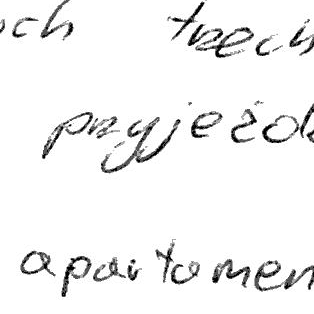 och trzech
przyjeżd
apartamen